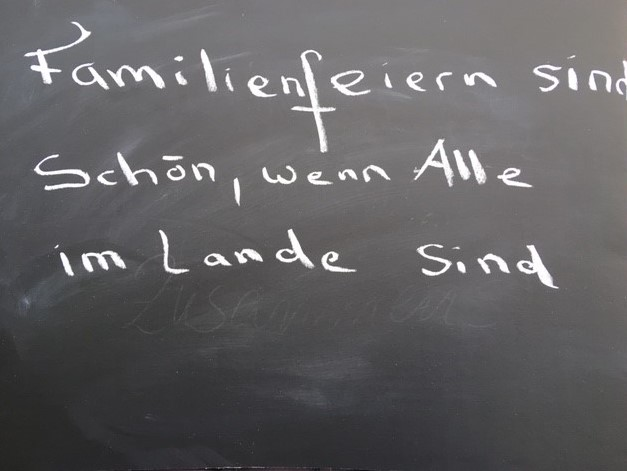 Familienfeiern sind
Schōn, wenn Alle
im Lande sind